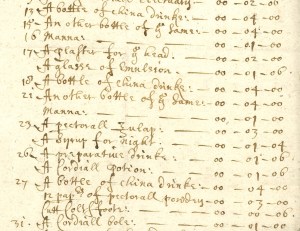 Electuary
13 A bottle of china drinke: — 00 — 02 — 00
15 An other bottle of ye same: — 00 — 04 — 00
16 Manna: — 00 — 00 — 04
17 A plaster for ye head. — 00 — 02 — 00
A glasse of Emulsion — 00 — 01 — 06
18 A bottle of china drinke: — 00 — 04 — 00
21 An other bottle of ye same: — 00 — 04 — 00
Manna: — 00 — 00
25 A pectorall Julap: — 00 — 03 — 00
A Syrup for night — 00 — 01 — 04
26 A preparative drinke: — 00 — 01 — 06
A Cordiall Potion: — 00 — 01 — 06
27 A bottle of china drinke: — 00 — 04 — 00
2 pap: of pectorall powders — 00 — 03 — 00
Cutt Colts foote: — 00 — 00
31 A Cordiall bole: — 00 — 01